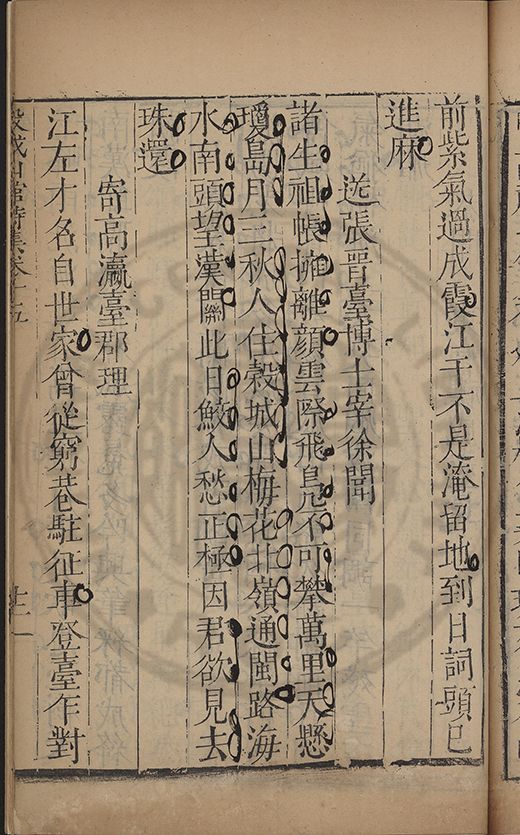 前紫氣過成霞江干不是淹留地到日詞頭已
進麻
送張晉臺博士宰徐聞
諸生祖帳擁離顏雲際飛鳧不可攀萬里天懸
瓊島月三秋人住穀城山梅花北嶺通閩路海
水南頭望漢關此日鮫人愁正極因君欲見去
珠還
寄高瀛臺郡理
江左才名自世家曾從窮巷駐征車登臺乍對
穀城山館詩集卷十五